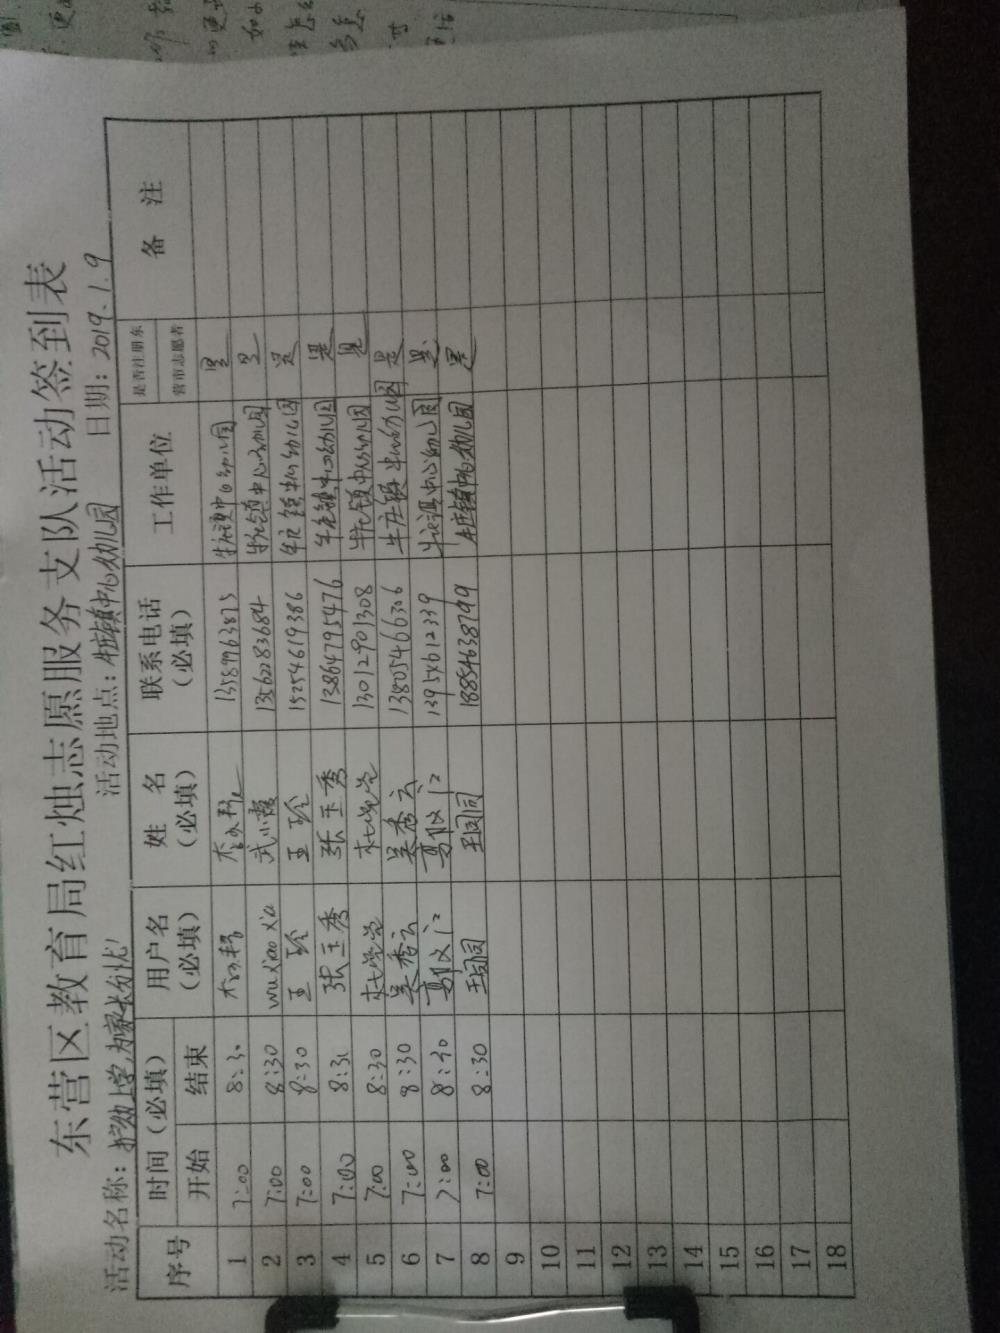 东营区教育局红烛志愿服务支队活动签到表
活动名称：护幼上学，为家长分忧！ 活动地点：牛庄镇中心幼儿园 日期：2019.1.9
序号 时间（必填） 用户名（必填） 姓名（必填） 联系电话（必填） 工作单位 是否注册东营市志愿者 备注
开始 结束
1 7:00 8:30 13589963823 牛庄镇中心幼儿园 是
2 7:00 8:30 wuxiaoxia 武小霞 13562283684 牛庄镇中心幼儿园 是
3 7:00 8:30 王玲 王玲 15254619386 牛庄镇中心幼儿园 是
4 7:00 8:30 张玉秀 张玉秀 13864795476 牛庄镇中心幼儿园 是
5 7:00 8:30 13012901308 牛庄镇中心幼儿园 是
6 7:00 8:30 吴秀云 吴秀云 13805466306 牛庄镇中心幼儿园 是
7 7:00 8:30 牛庄镇中心幼儿园 是
8 7:00 8:30 王同同 王同同 18854638799 牛庄镇中心幼儿园 是
9
10
11
12
13
14
15
16
17
18